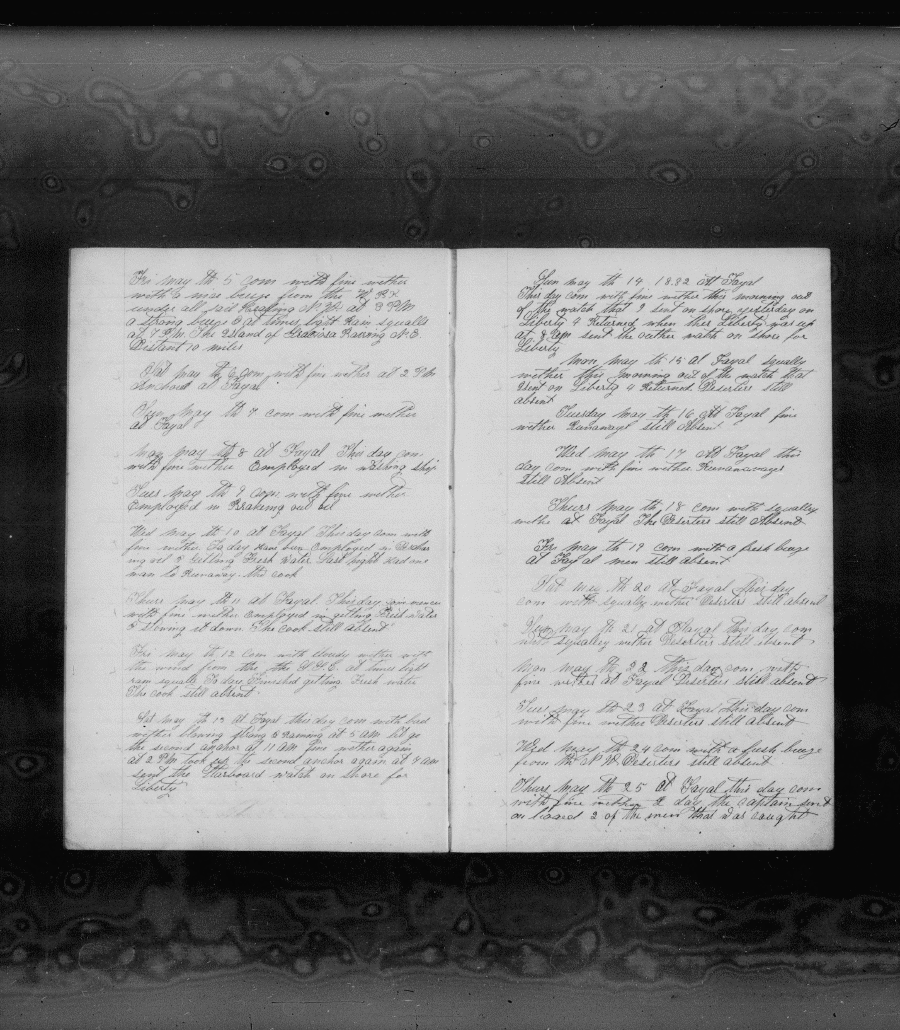 Fri may th 5 com with fine wether
with a nice breze from the
under all sail Heading N.N. at 3 PM
a strong breze & at times light Rain squalls
at 7 P.m. The Island of Graciosa Baring N.E.
Distant 10 miles
Sat may th 6 com with fine wether at 2 Pm
Anchored at Fayal
Sun May th 7 com with fine wether
at Fayal
may th 8 at Fayal This day com
with fine wether Employed in washing ship
Tues May th 9 com with fine wether
Employed in Brakeing out oil
Wed may th 10 at Fayal This day com with
fine wether To day have ben Employed in
ing oil & Getting Fresh water Last night had one
man to Runaway the cook
Thurs may th 11 at Fayal This day
with fine wether Employed in getting Fresh water
& Stowing it down The cook still absent
Fri may th 12 Com with cloudy wether with
the wind from the at times light
rain squalls To day Finished getting Fresh water
The cook still absent
Sat may th 13 at Fayal this day com with bad
wether blowing strong & Raining at 5 am let go
the second anchor at 11 am fine wether again
at 2 PM took up the second anchor again at am
sent the Starboard watch on shore for
Liberty
Sun may th 14 1882 At Fayal
This day com with fine wether this morning out
of the watch that I sent on shore yesterday on
Liberty 4 Returned when ther Liberty was up
at 8 am sent the outher watch on shore for
Liberty
mon may th 15 at Fayal squally
wether this morning out of the watch that
I sent on Liberty 4 Returned Deserters still
absent
Tuesday may th 16 At Fayal fine
wether Runaways still Absent
Wed may th 17 At Fayal this
day com with fine wether Runaways
still Absent
Thurs may th 18 com with squally
wether at Fayal The Deserters still Absent
Fri may th 19 com with a fresh breze
at Fayal men still absent
Sat may th 20 at Fayal this day
com with squally wether Deserters still absent
Sun may th 21 at Fayal this day com
with squalley wether Deserters still absent
mon may th 22 this day com with
fine wether at Fayal Deserters still absent
Tues may th 23 at Fayal this day com
with fine wether Deserters still absent
Wed may th 24 com with a fresh breze
from the N W Deserters still absent
Thurs may th 25 at Fayal this day com
with fine wether 2 day the captain sent
on board 2 of the men that was caught